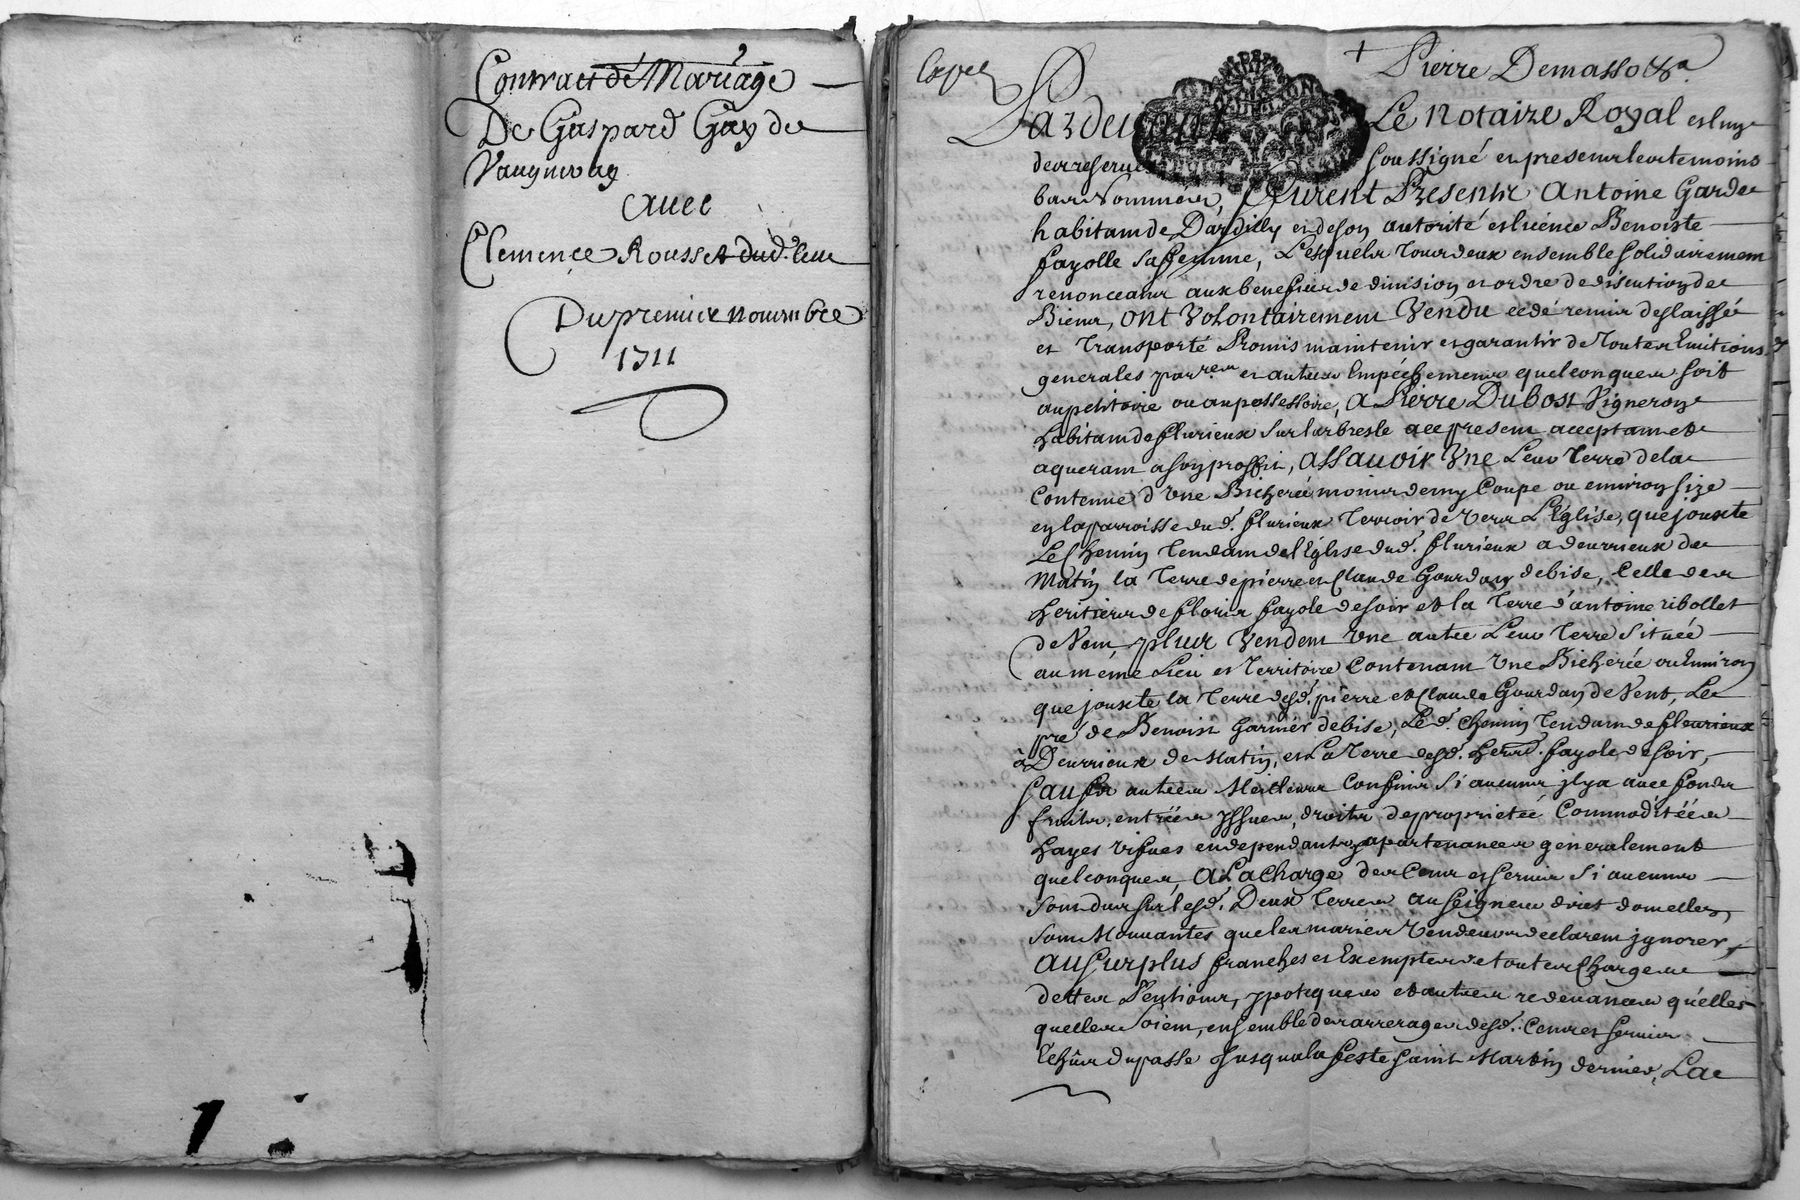 Contract de Mariage
De Gaspard Gay de
Vaugneray
avec
Clemence Rousset dud. lieu
Du premier novembre
1711
Pierre Demasso
Pardevant Le Notaire Royal
soussigné et presens les temoins
bas Nommés, furent Presents Antoine Garde
habitant de Dardilly et de son autorité et licence Benoiste
fayolle sa femme, Lesquels tous deux ensemble solidairement
renonceant aux benefices de division et ordre de discution de
Biens, ont volontairement Vendu cedé remis deslaissé
et Transporté Promis maintenir et garantir de toutes Evitions
generales par.res et autres Empéchemens quelconques soit
au petitoire ou au possessoire, A Pierre Dubost Vigneron
habitant de flurieux sur larbresle ace present acceptant et
aquerant a son proffit, assauoir Vne Leur Terre de la
Contenue d'Vne Bicherée moins demy Coupe ou environ size
en la parroisse dud. flurieux Terroir de Vers L'Eglise, que jouxte
Le Chemin Tendant de l'Eglise dud. flurieux a deurrieux de
Matin la Terre de pierre et Claude Gourdan de bise, Celle des
heritiers de floris fayole de soir et la Terre d'antoine ribollet
de Vent, plus Vendent Vne autre Leur Terre Située
au même Lieu et Territoire Contenant Vne Bicherée ou Environ
que jouxte la Terre desd. pierre et Claude Gourdan de Vent, Le
pré de Benoist Garnier de bise, Led. Chemin Tendant de fleurieux
à Deurrieux de Matin, et La Terre desd. fayole de soir,
sauf ses autres Meilleurs Confins Si aucuns jl ya avec fonds
fruits, entrées yssues, droits de proprietée Commoditées
hayes vifues en dependants apartenances generalement
quelconques, A La Charge des Cens et servis Si aucuns
sont dus sur lesd. Deux Terres au seigneur
sont Mouuantes que les mariés Vendeurs declarent jgnorer,
au surplus franches et Exemptes de toutes Charges
dettes Pentions, ypoteques et autres redevances quelles
quelles Soient, ensemble des arrerages desd. Cens et servis
Echûs du passé Jusqua la feste saint Martin dernier, La